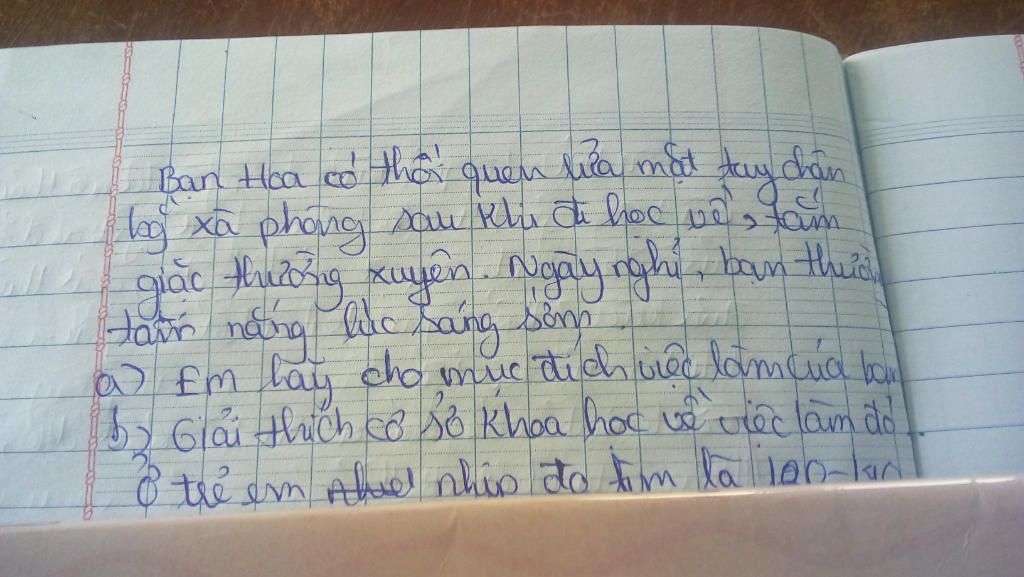 Bạn Hoa có thói quen rửa mặt tay chân
bg xà phòng sau khi đi học về, tắm
giặc thường xuyên. Ngày nghỉ, bạn thường
tắm nắng lúc sáng sớm.
a) Em hãy cho mục đích việc làm của bạn
b) Giải thích cơ sở khoa học về việc làm đó.
Ở trẻ em nhịp đo tim là